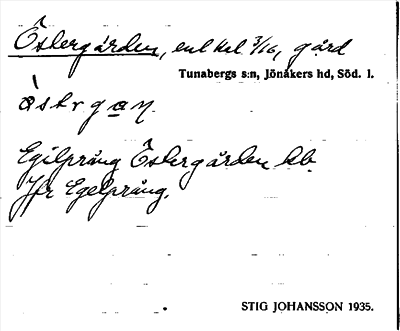 Östergården, enl kel 7/16, gård
Tunabergs s:n, Jönåkers hd, Söd. l.
Egilpräng Östergården kb.
Jfr Egelpräng.
STIG JOHANSSON 1935.